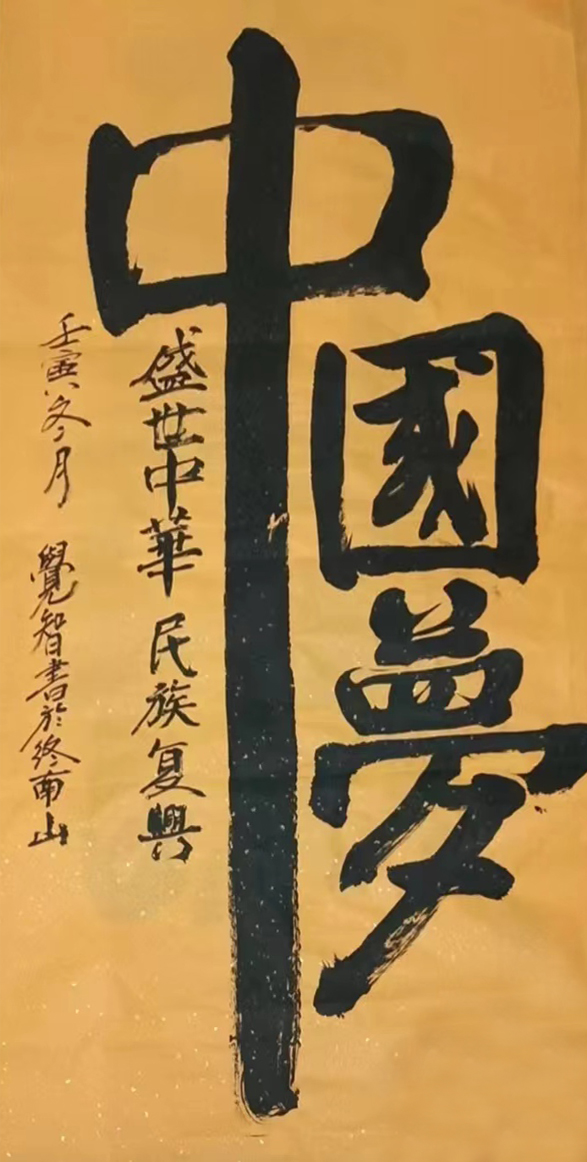 中國夢
盛世中華 民族复興
壬寅冬月 覺智書於终南山